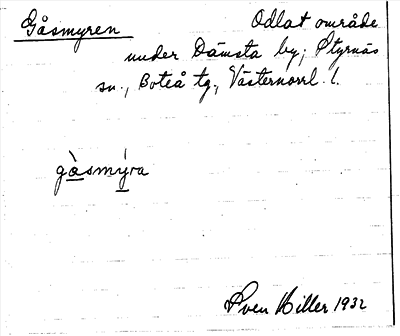 Gåsmyren Odlat område
under Dämsta by; Styrnäs
sn., Boteå tg., Västernorrl. l.
gàsmýra
Sven Hiller 1932